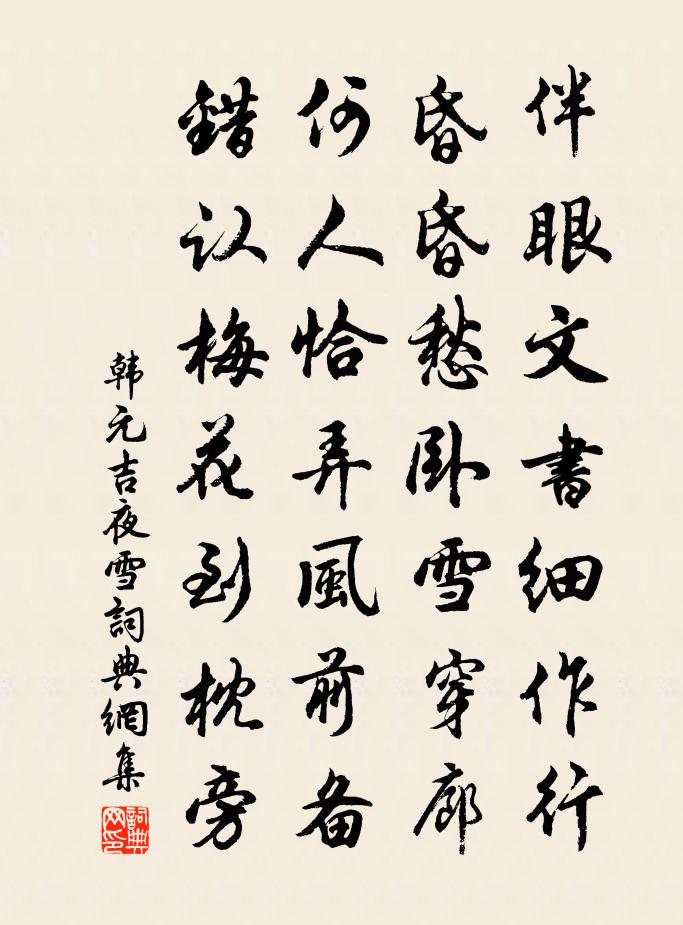 伴眼文書細作行
昏昏愁卧雪穿廊
何人恰弄風前备
錯认梅花到枕旁
韩元吉夜雪詞典網集
詞典网印